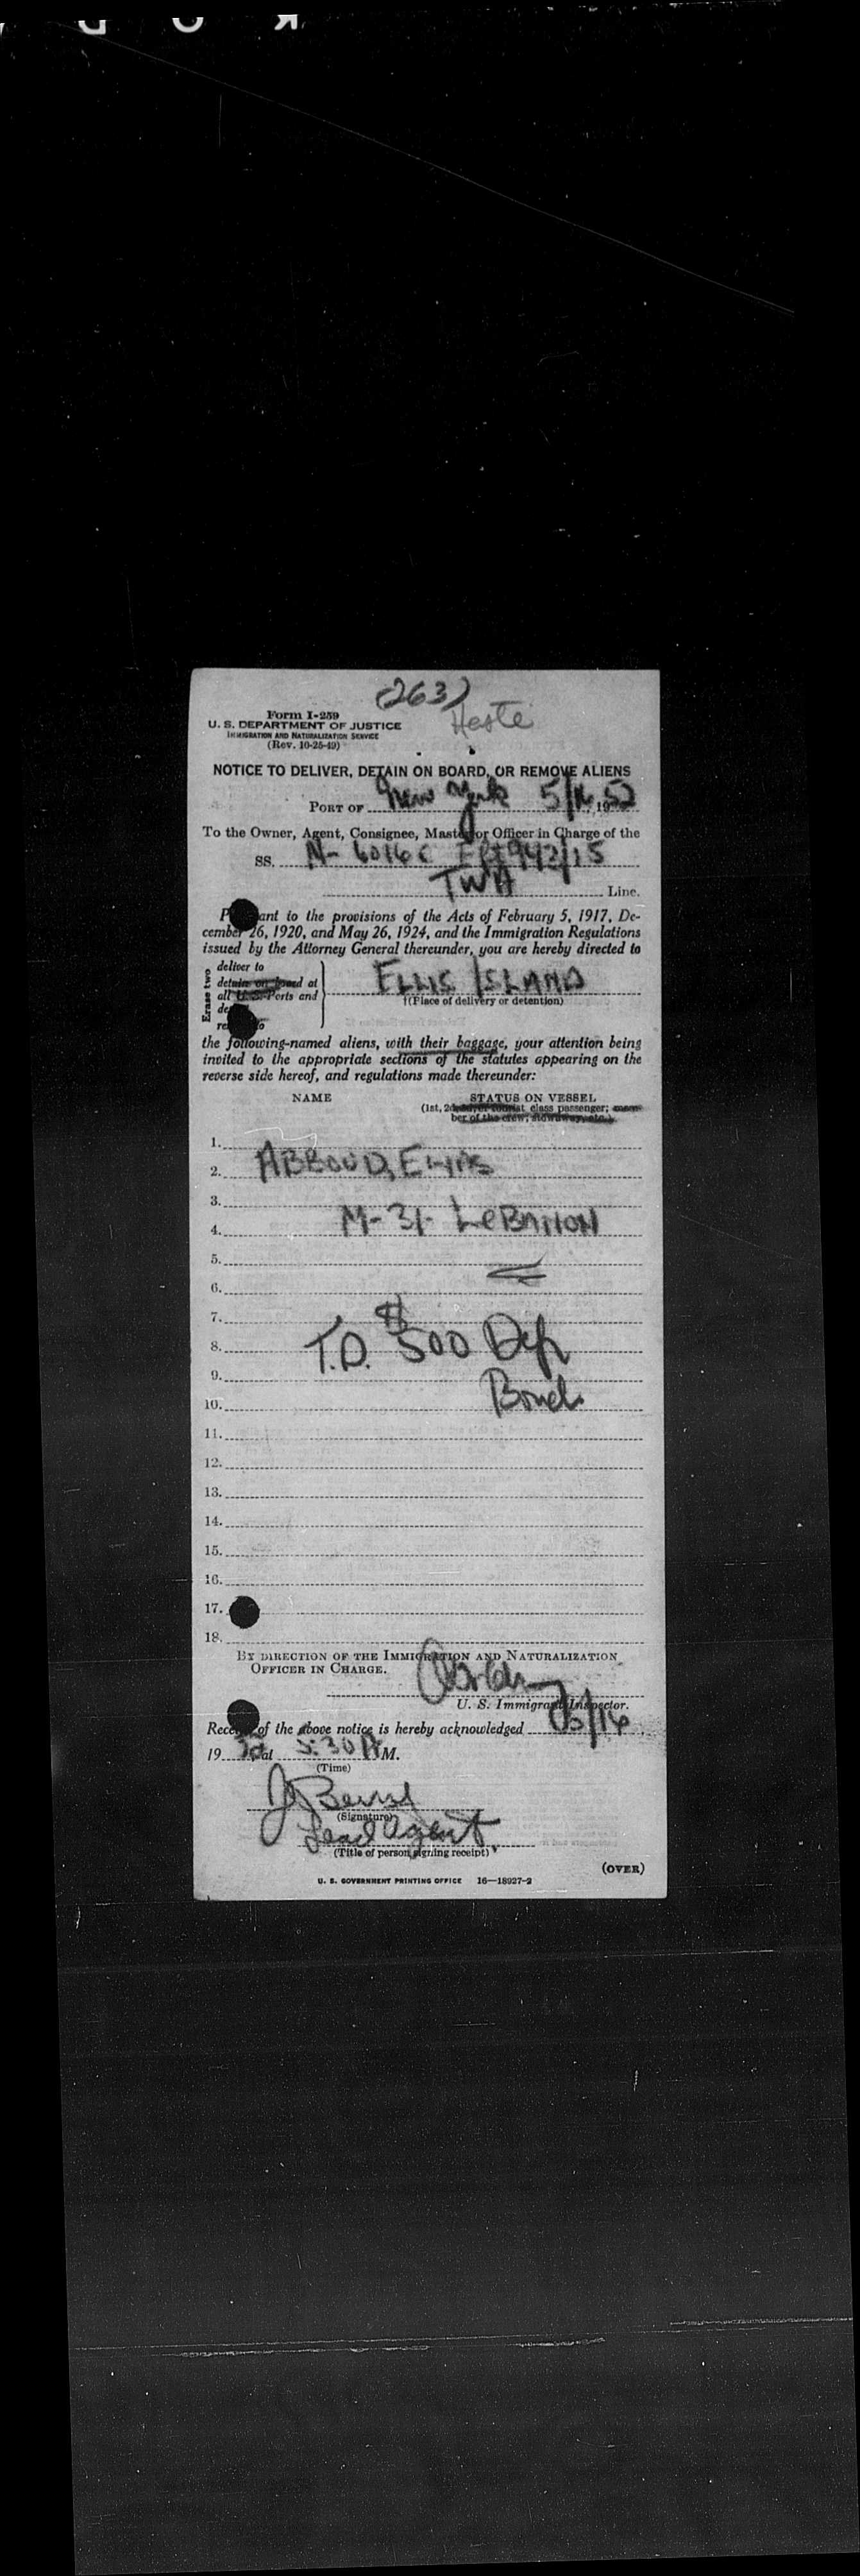 (263)
Heste
Form I-259
U. S. DEPARTMENT OF JUSTICE
IMMIGRATION AND NATURALIZATION SERVICE
(Rev. 10-25-49)
NOTICE TO DELIVER, DETAIN ON BOARD, OR REMOVE ALIENS
PORT OF New York 5/16, 1952
To the Owner, Agent, Consignee, Master or Officer in Charge of the
SS. N-6016C Flt 942/15
TWA Line.
ant to the provisions of the Acts of February 5, 1917, De-
cember 26, 1920, and May 26, 1924, and the Immigration Regulations
issued by the Attorney General thereunder, you are hereby directed to
Erase two
deliver to
detain on board at
all U.S. Ports and
de
re to
ELLIS ISLAND
†(Place of delivery or detention)
the following-named aliens, with their baggage, your attention being
invited to the appropriate sections of the statutes appearing on the
reverse side hereof, and regulations made thereunder:
NAME STATUS ON VESSEL
(1st, 2d, tourist class passenger; mem-
ber of the crew, stowaway, etc.)
1.
2. ABBOUD, ELIAS
3.
4. M-31- LEBANON
5.
6.
7.
8. T.D. $500 Dep
9.
10. Bond
11.
12.
13.
14.
15.
16.
17.
18.
BY DIRECTION OF THE IMMIGRATION AND NATURALIZATION
OFFICER IN CHARGE.
U. S. Immigrant Inspector.
Receipt of the above notice is hereby acknowledged 5/16,
19 52 at 5:30 P M.
(Time)
(Signature)
Lead Agent
(Title of person signing receipt)
(OVER)
U. S. GOVERNMENT PRINTING OFFICE 16—18927-2